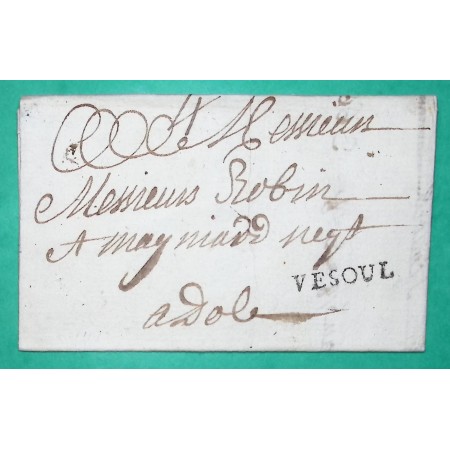 A Messieurs
Messieurs Robin
et maynard negt
VESOUL
a Dole